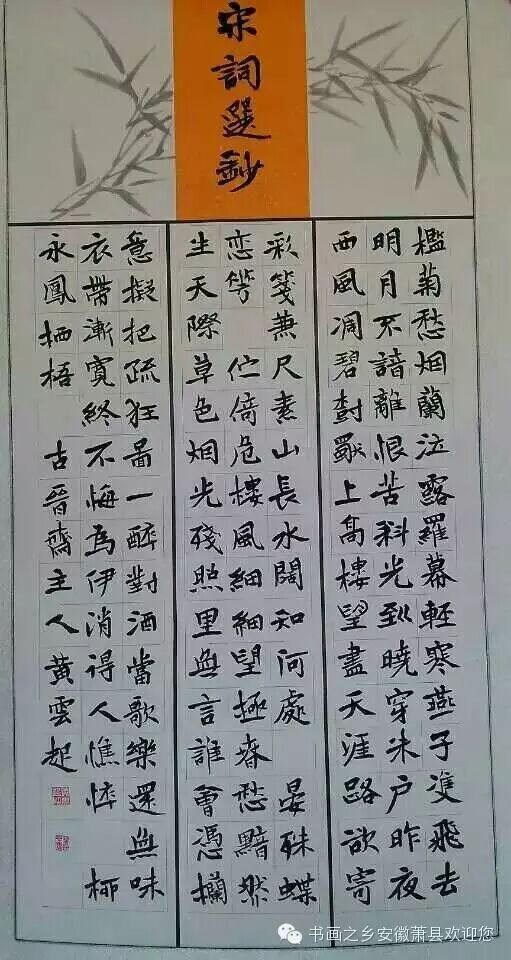 宋詞選鈔
檻菊愁烟蘭泣露羅幕輕寒燕子隻飛去
明月不諳離恨苦斜光到曉穿朱户昨夜
西風凋碧樹獨上高樓望盡天涯路欲寄
彩箋兼尺素山長水闊知何處 晏殊蝶
恋花 伫倚危樓風細細望極春愁黯然
生天際草色烟光殘照里無言誰會憑欄
意擬把疏狂圖一醉對酒當歌樂還無味
衣帶漸寬終不悔為伊消得人憔悴 柳
永鳳栖梧 古晉齋主人黄雲起
书画之乡安徽萧县欢迎您